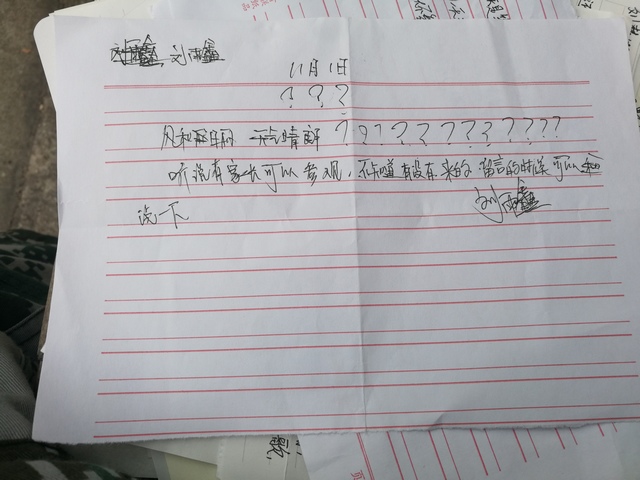 刘雨鑫，刘雨鑫
11月1日
？？？
风和日丽 天气晴朗 ？？？？？？？？？？？？
听说有家长可以参观，不知道有没有来的，留言的时候可以
说一下
刘雨鑫